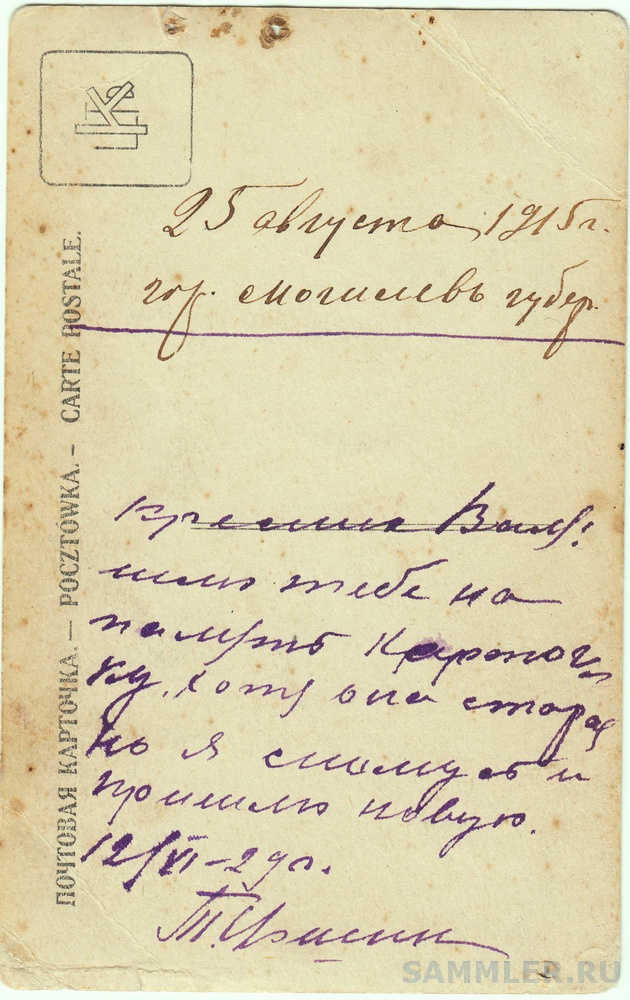 25 августа 1915 г.
гор. Могилевъ губер.
ПОЧТОВАЯ КАРТОЧКА. — POCZTÓWKA. – CARTE POSTALE.
Валя!
шлю тебе на
память карточ-
ку, хотя она старая
но я снимусь и
пришлю новую.
12/VI–29 г.
SAMMLER.RU